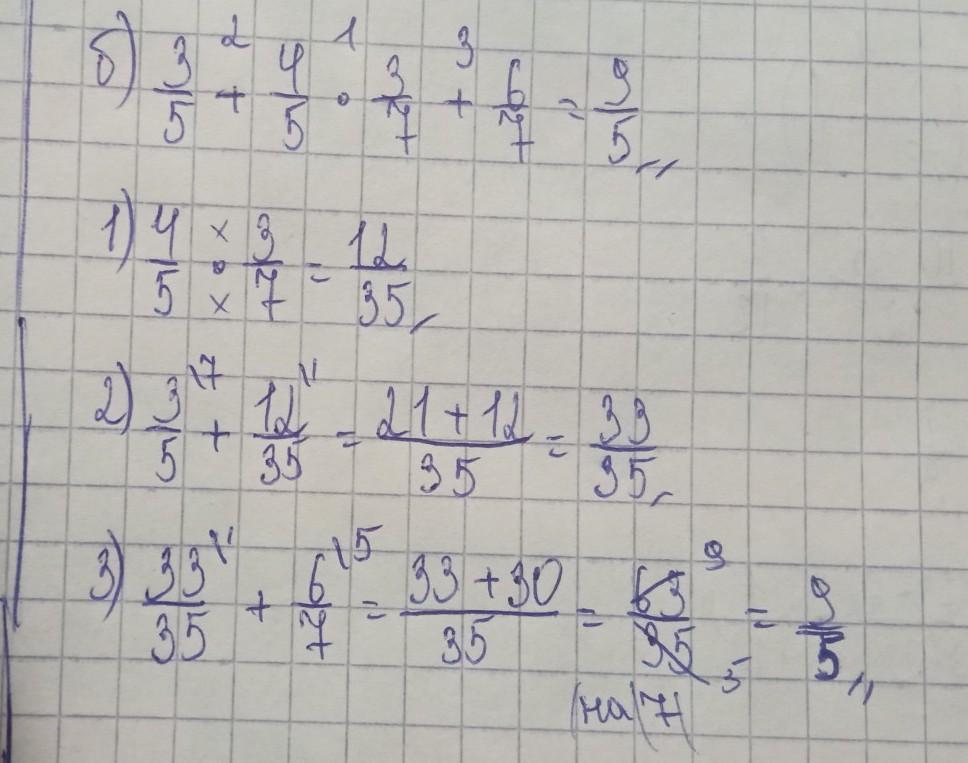 б) 3/5 +² 4/5 ·¹ 3/7 +³ 6/7 = 9/5,,
1) 4/5 · 3/7 = 12/35,
2) 3\7/5 + 12\1/35 = 21+12/35 = 33/35,
3) 33\1/35 + 6\5/7 = 33+30/35 = 63 9/35 5 = 9/5,,
(на 7)